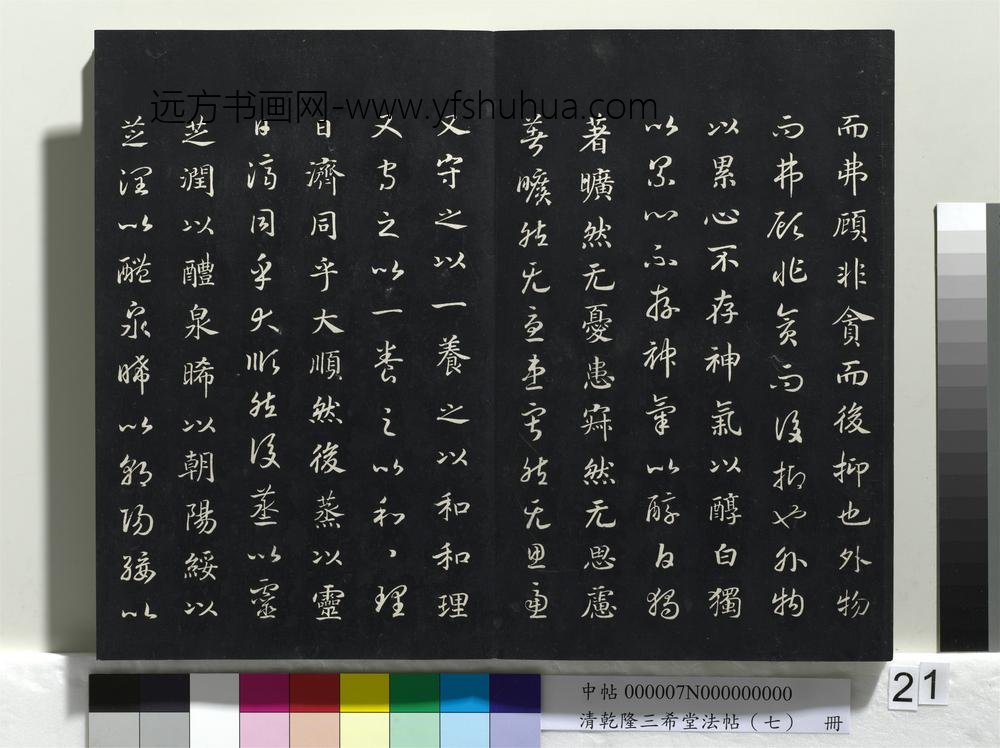 远方书画网-www.yfshuhua.com
而弗顧非貪而後抑也外物
而弗顧非貪而後抑也外物
以累心不存神氣以醇白獨
以累心不存神氣以醇白獨
著曠然无憂患寂然无思慮
著曠然无憂患寂然无思慮
又守之以一養之以和和理
又守之以一養之以和〻理
日濟同乎大順然後蒸以靈
日濟同乎大順然後蒸以靈
芝潤以醴泉晞以朝陽綏以
芝潤以醴泉晞以朝陽綏以
中帖 000007N000000000
清乾隆三希堂法帖（七） 冊
21